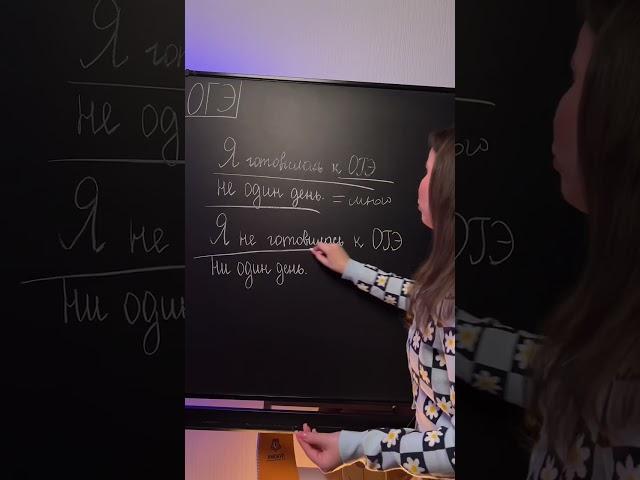 ОГЭ
Я готовилась к ОГЭ
не один день. = много
Я не готовилась к ОГЭ
ни один день.